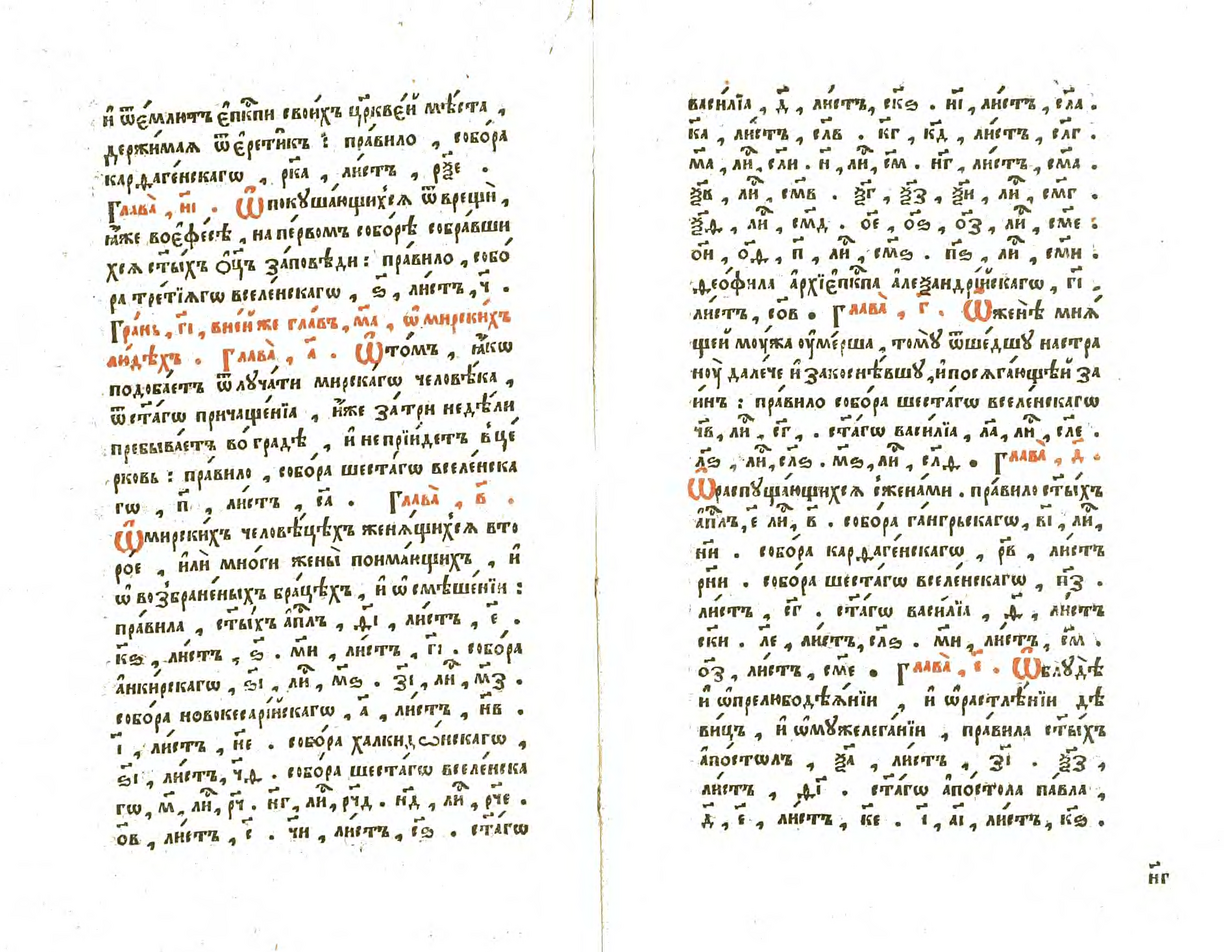 и҆ ѿе́млютъ є҆пⷭ҇кпи свои́хъ цр҃кве́й мѣ́ста ,
держи́маѧ ѿ є҆рети́къ : пра́вило , собо́ра
карѳаге́нскагѡ , рк҃а , ли́стъ , рѯ҃е .
Глава̀ , и҃і . Ѿ покꙋша́ющихсѧ ѿ врещѝ ,
ꙗ҆́же во є҆фе́сѣ , на пе́рвомъ собо́рѣ собра́вши
хсѧ ст҃ы́хъ ѻ҆ц҃ъ за́повѣди : пра́вило , собо́
ра тре́тїѧгѡ вселе́нскагѡ , ѕ҃ , ли́стъ , ч҃ .
Гра́нь , г҃і , в не́й же гла́въ , м҃а , ѡ҆ мирски́хъ
лю́дехъ . Глава̀ , а҃ . Ѡ҆ то́мъ , ꙗ҆́кѡ
подоба́етъ ѿлꙋча́ти мирска́гѡ человѣ́ка ,
ѿ ст҃а́гѡ причаще́нїѧ , и҆́же за́ три недѣ́ли
пребыва́етъ во́ градѣ , и҆ не прїи́детъ в̾ це́
рковь : пра́вило , собо́ра шеста́гѡ вселе́нска
гѡ , п҃ , ли́стъ , с҃а . Глава̀ , в҃ .
Ѡ҆ мирски́хъ человѣ́цѣхъ женѧ́щихсѧ вто
ро́е , и҆лѝ мно́ги жены̀ пои́мающихъ , и҆
ѡ҆ возбране́ныхъ бра́цѣхъ , и҆ ѡ҆ смѣше́нїи :
пра́вила , ст҃ы́хъ а҆пⷭ҇лъ , д҃і , ли́стъ , е҃ .
к҃ѕ , ли́стъ , ѕ҃ . м҃и , ли́стъ , г҃і . собо́ра
а҆нки́рскагѡ , ѕ҃і , лиⷭ҇ , м҃ѕ . з҃і , лиⷭ҇ , м҃з .
собо́ра новокесарі́йскагѡ , а҃ , ли́стъ , н҃в .
і҃ , ли́стъ , н҃е . собо́ра халкидѡ́нскагѡ ,
ѕ҃і , ли́стъ , ч҃д . собо́ра шеста́гѡ вселе́нска
гѡ , м҃ , лиⷭ҇ , рч҃ . н҃г , лиⷭ҇ , рч҃д . н҃д , лиⷭ҇ , рч҃е .
о҃в , ли́стъ , с҃ . ч҃и , ли́стъ , с҃ѕ . ст҃а́гѡ
васи́лїа , д҃ , ли́стъ , ск҃ѕ . и҃і , ли́стъ , сл҃а .
к҃а , ли́стъ , сл҃в . к҃г , к҃д , ли́стъ , сл҃г .
м҃а , лиⷭ҇ , сл҃и . н҃ , лиⷭ҇ , см҃ . н҃г , ли́стъ , см҃а .
ѯ҃в , лиⷭ҇ , см҃в . ѯ҃г , ѯ҃з , ѯ҃и , лиⷭ҇ , см҃г .
ѯ҃д , лиⷭ҇ , см҃д . о҃е , о҃ѕ , о҃з , лиⷭ҇ , см҃е :
о҃и , о҃д , п҃ , лиⷭ҇ , см҃ѕ . п҃ѕ , лиⷭ҇ , см҃и .
ѳео́фила а҆рхїєпⷭ҇кпа а҆леѯандрі́йскагѡ , г҃і ,
ли́стъ , со҃в . Глава̀ , г҃ . Ѡ҆ женѣ̀ мнѧ́
щей мꙋ́жа ᲂу҆ме́рша , томꙋ̀ ѿше́дшꙋ на стра
нꙋ̀ дале́че и҆ закоснѣ́вшꙋ , и҆ посѧга́ющей за
и҆́нъ : пра́вило собо́ра шеста́гѡ вселе́нскагѡ
ч҃в , лиⷭ҇ , с҃г . ст҃а́гѡ васи́лїа , л҃а , лиⷭ҇ , сл҃е .
л҃ѕ , лиⷭ҇ , сл҃ѕ . м҃ѕ , лиⷭ҇ , сл҃д . Глава̀ , д҃ .
Ѡ҆ распꙋща́ющихсѧ с̾ жена́ми . пра́вило ст҃ы́хъ
а҆пⷭ҇лъ , е҃ лиⷭ҇ , в҃ . собо́ра га́нгрьскагѡ , в҃і , лиⷭ҇ ,
н҃и . собо́ра карѳаге́нскагѡ , р҃в , ли́стъ
рн҃и . собо́ра шеста́гѡ вселе́нскагѡ , п҃з .
ли́стъ , с҃г . ст҃а́гѡ васи́лїа , ѳ҃ , ли́стъ
ск҃и . л҃е , ли́стъ , сл҃ѕ . м҃и , ли́стъ , см҃ .
о҃з , ли́стъ , см҃е . Глава̀ , е҃ . Ѡ҆ блꙋ́дѣ
и҆ ѡ҆ прелюбодѣѧ́нїи , и҆ ѡ҆ растлѣ́нїи дѣ
ви́цъ , и҆ ѡ҆ мꙋжелега́нїи , пра́вила ст҃ы́хъ
а҆по́столъ , ѯ҃а , ли́стъ , з҃і . ѯ҃з ,
ли́стъ , д҃і . ст҃а́гѡ а҆по́стола па́вла ,
д҃ , е҃ , ли́стъ , к҃е . і҃ , а҃і , ли́стъ , к҃ѕ .
н҃г